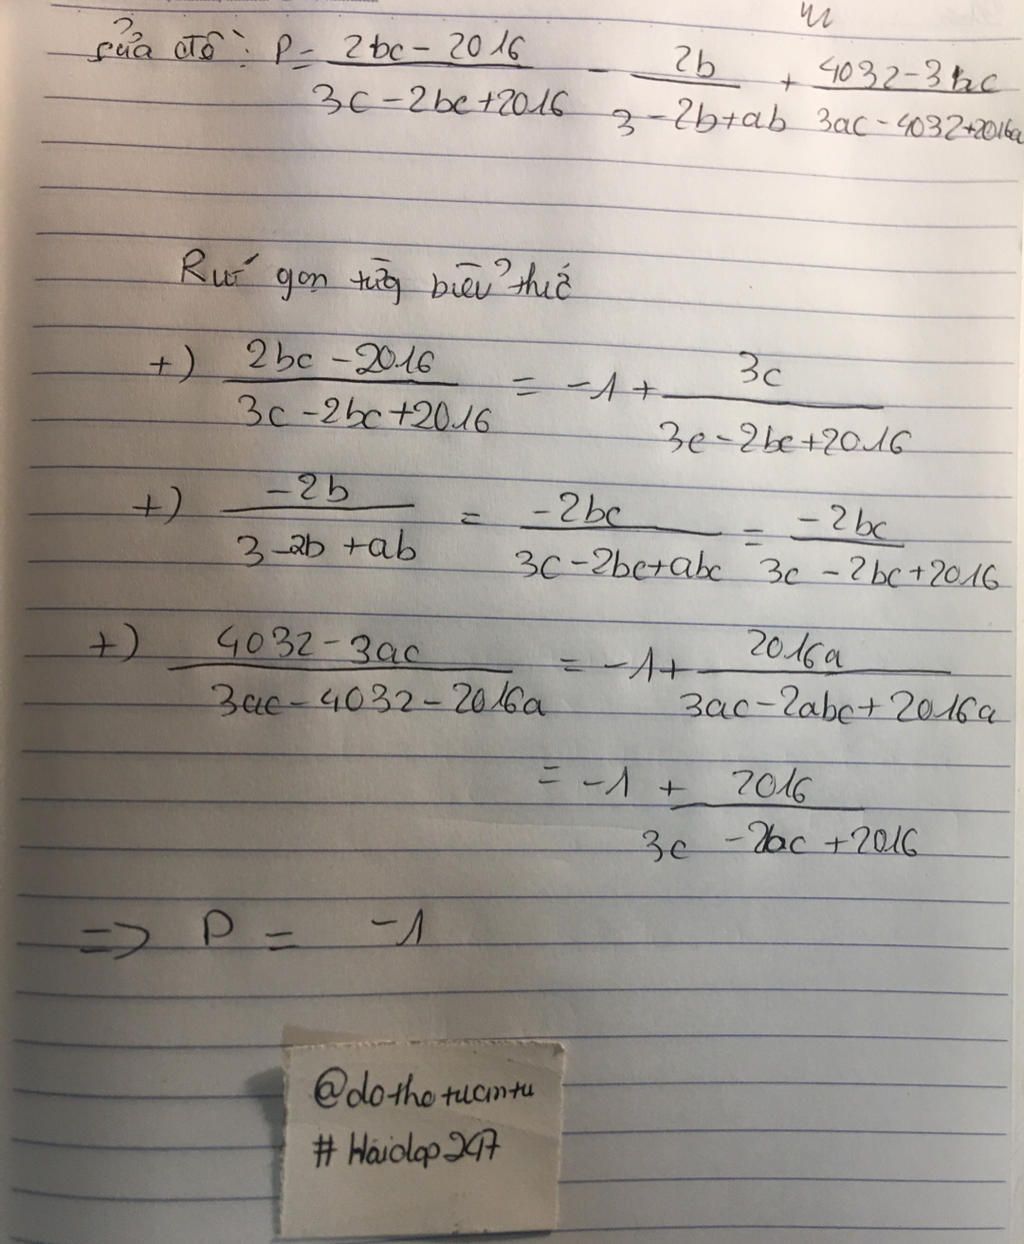 sửa đề: P = \frac{2bc - 2016}{3c - 2bc + 2016} - \frac{2b}{3 - 2b + ab} + \frac{4032 - 3ac}{3ac - 4032 + 2016a}
Rút gọn từg biểu thức
+) \frac{2bc - 2016}{3c - 2bc + 2016} = -1 + \frac{3c}{3c - 2bc + 2016}
+) \frac{-2b}{3 - 2b + ab} = \frac{-2bc}{3c - 2bc + abc} = \frac{-2bc}{3c - 2bc + 2016}
+) \frac{4032 - 3ac}{3ac - 4032 - 2016a} = -1 + \frac{2016a}{3ac - 2abc + 2016a}
= -1 + \frac{2016}{3c - 2bc + 2016}
=> P = -1
@dothotucintu
# Hỏiđáp247